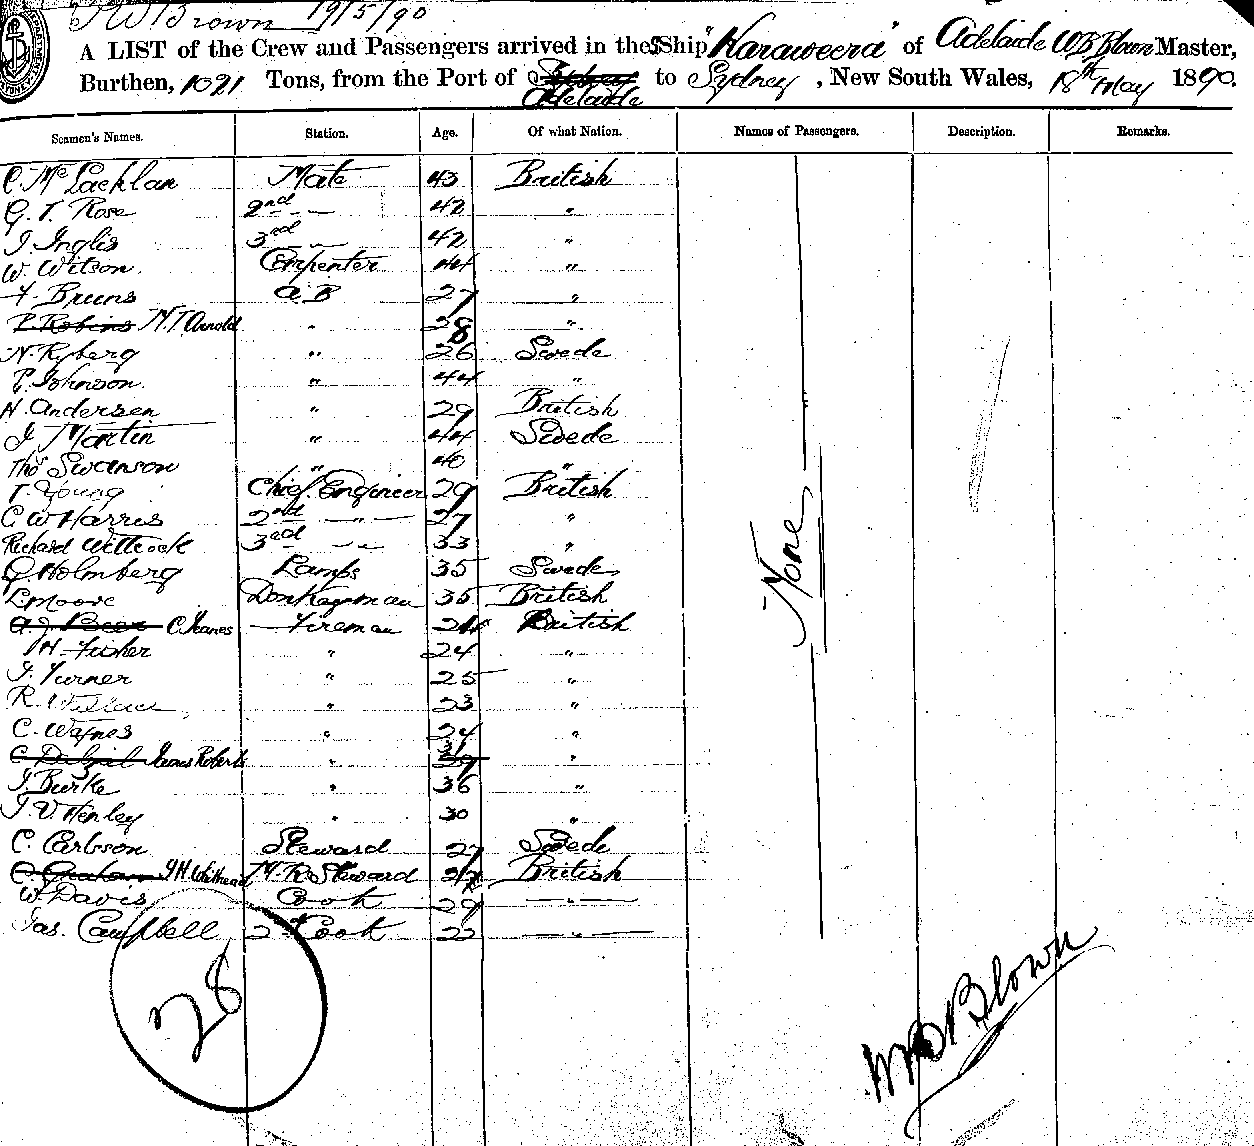 Brown 19/5/90
A LIST of the Crew and Passengers arrived in the SShip "Kanaweera" of Adelaide W B Blown Master,
Burthen, 1021 Tons, from the Port of Sydney Adelaide to Sydney, New South Wales, 18th May 1890.
Seamen's Names. Station. Age. Of what Nation. Names of Passengers. Description. Remarks.
C. McLachlan Mate 43 British
G. T. Rose 2nd " 42 "
J. Inglis 3rd " 42 "
W. Wilson. Carpenter 44 "
F. Bruns A.B 27 "
P. Robins N. T. Arnold " 28 "
N. Ryberg " 26 Swede
P. Johnson. " 44 "
H. Andersen " 29 British
J. Martin " 44 Swede
Thos Swanson " 40 "
T. Young Chief Engineer 29 British
C W Harris 2nd " 27 "
Richard Wittcock 3rd " 33 "
G. Holmberg Lamps 35 Swede
L. Moore Donkeyman 35 British
A. J. Beer C. Jeanes Fireman 24 British
H. Fisher " 24 "
J. Turner " 25 "
R. Wallace " 23 "
C. Waynes " 24 "
C. Dalziel James Roberts " "
J. Burke " 36 "
J. V. Henley " 30 "
C. Carlsson Steward 27 Swede
Graham J H Steward British
W. Davis Cook 29 "
Jas. Campbell 2nd Cook 22 "
None
28
W B Blown